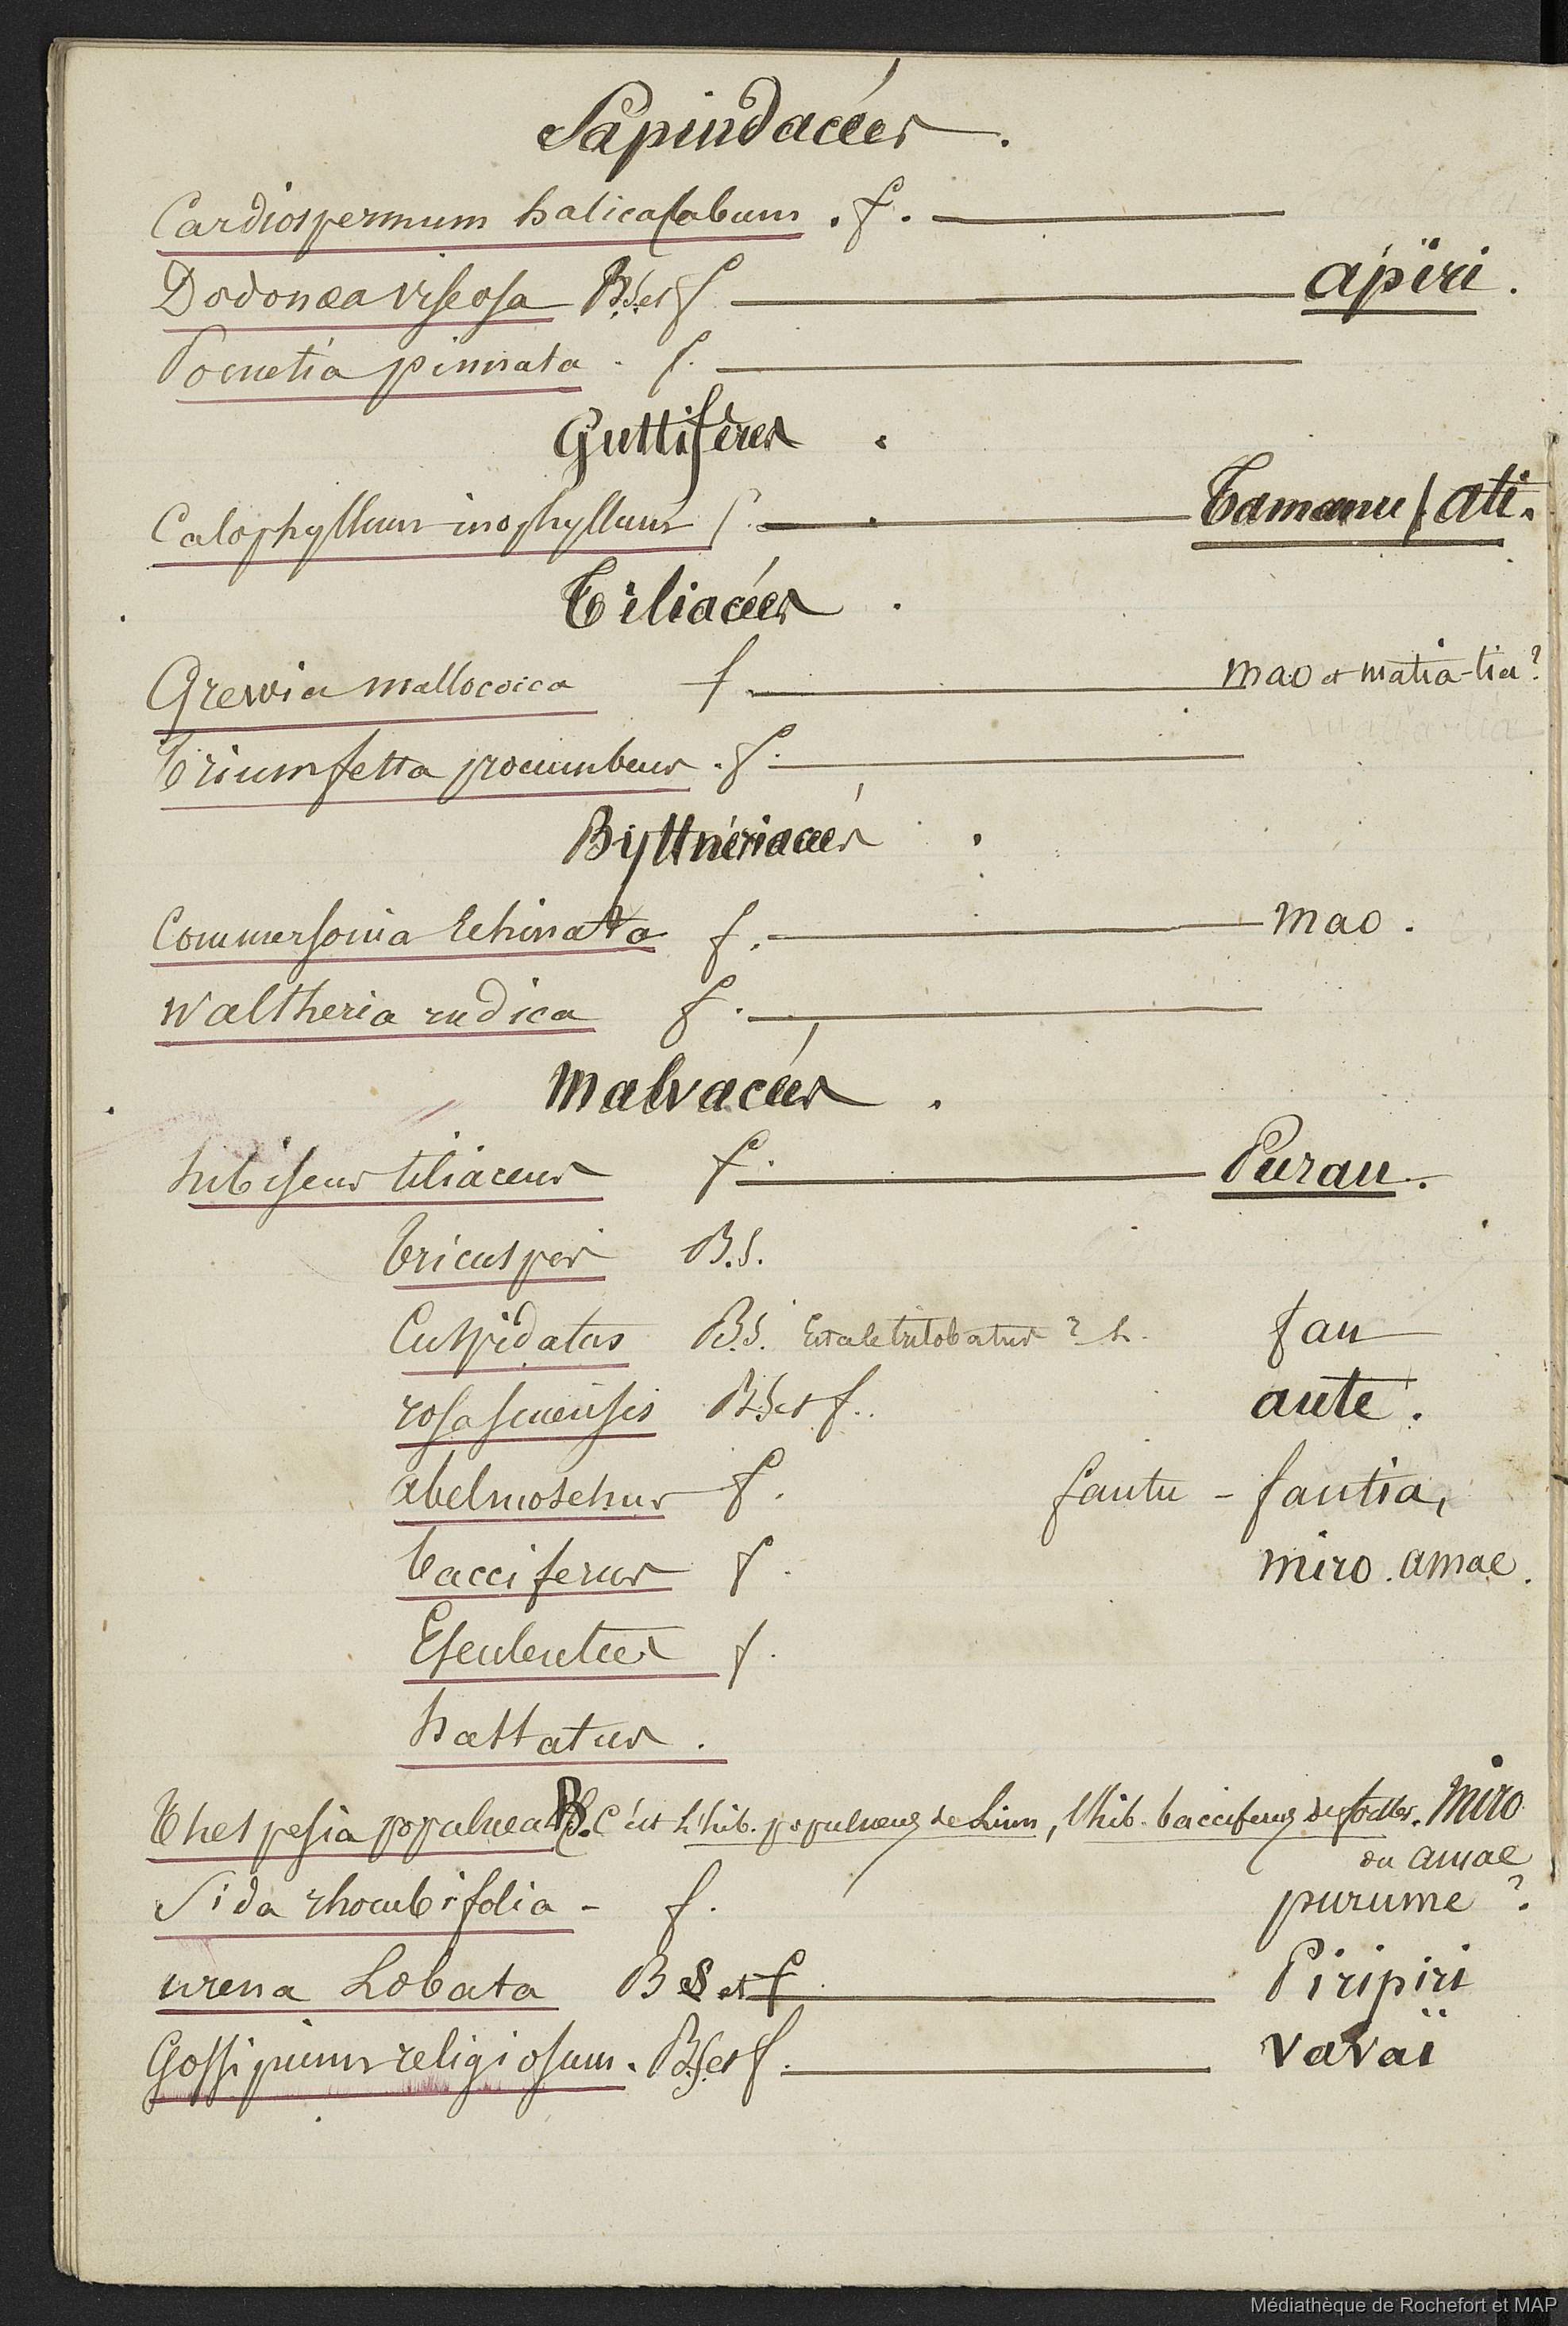 Sapindacées.
Cardiospermum halicacabum. f.
Dodonæa viscosa B.S. et f apïri.
Pometia pinnata. f.
Guttifères.
Calophyllum inophyllum f. Tamanu / ati.
Tiliacées.
Grewia mallococca f. mao et matia-tia?
Triumfetta procumbens. f.
Byttnériacées.
Commersonia Echinata f. mao.
Waltheria indica f.
Malvacées.
hibiscus tiliaceus f. Purau.
tricuspis B.S.
Cuspidatus B.S. trilobatus? h. fau
rosa sinensis B.S. et f. aute.
abelmoschus f. fautu - fautia,
bacciferus f. miro. amae.
Esculentus f.
hastatus.
Thespesia populnea B.S. C'est l'hib. populneus de Linn, l'hib. bacciferus de Forster. Miro
ou amae
Sida rhombifolia - f. purume?
urena Lobata B S et f. Piripiri
Gossipium religiosum. B.S. et f. vavaï
Médiathèque de Rochefort et MAP